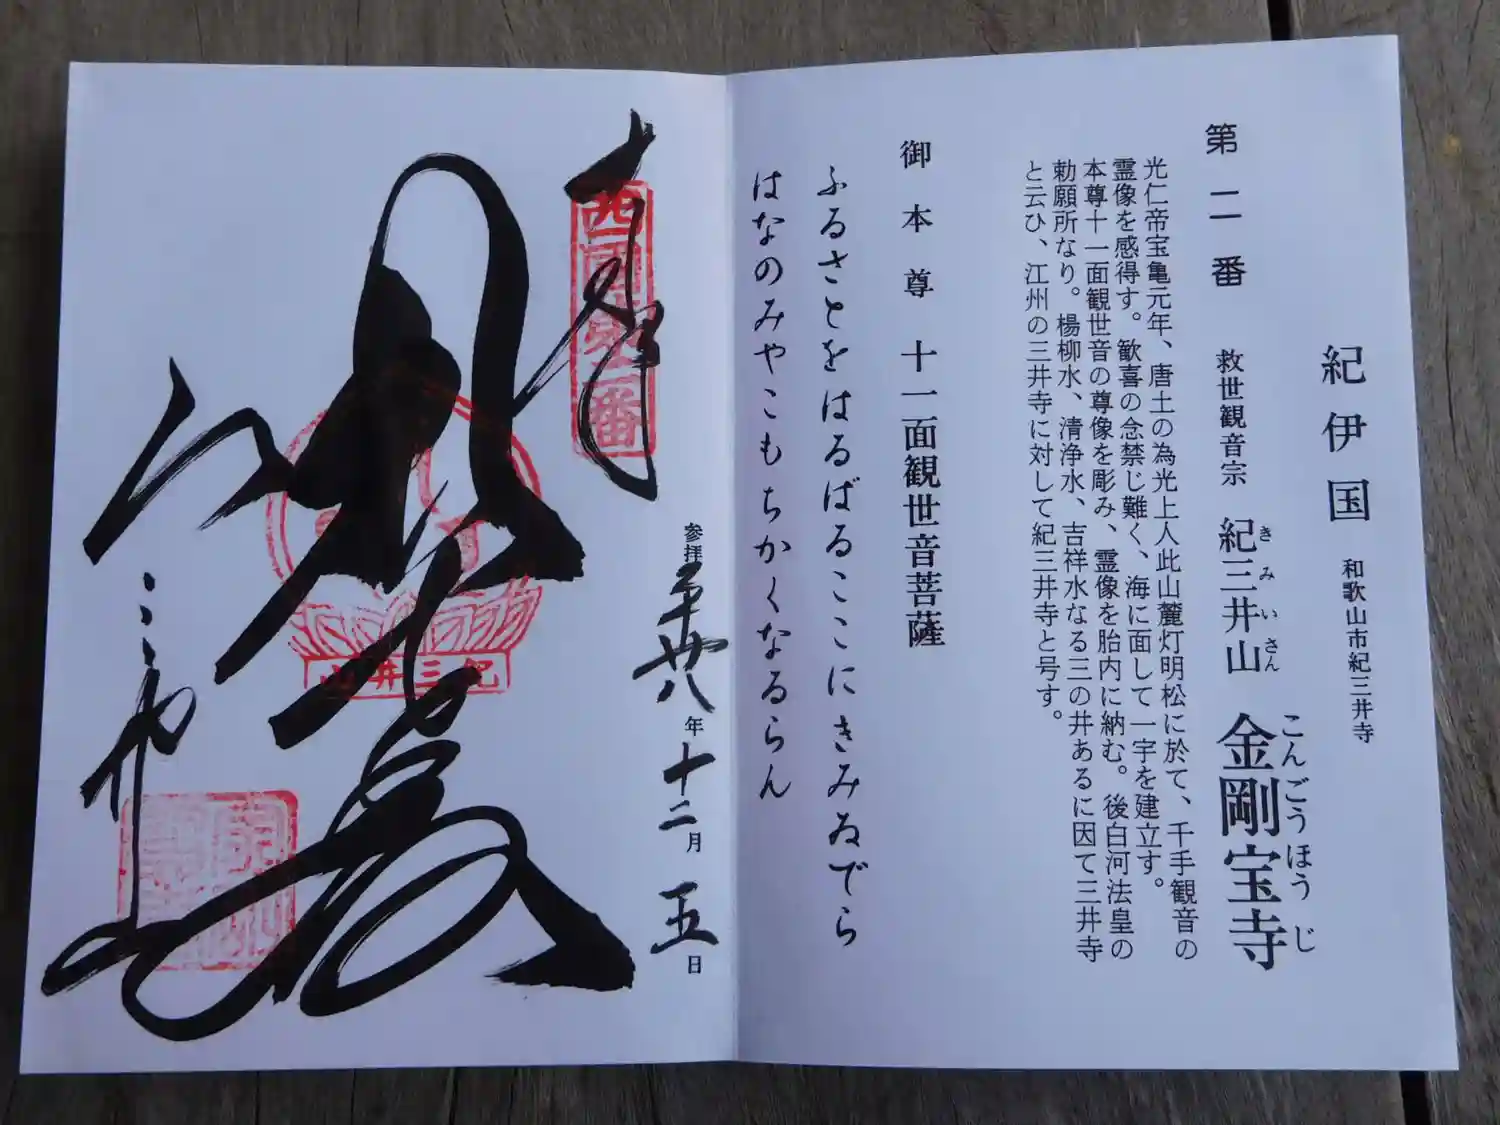 紀伊国 和歌山市紀三井寺
第二番 救世観音宗 紀三井山 金剛宝寺
きみいさん こんごうほうじ
光仁帝宝亀元年、唐土の為光上人此山麓灯明松に於て、千手観音の
霊像を感得す。歓喜の念禁じ難く、海に面して一宇を建立す。
本尊十一面観世音の尊像を彫み、霊像を胎内に納む。後白河法皇の
勅願所なり。楊柳水、清浄水、吉祥水なる三の井あるに因て三井寺
と云ひ、江州の三井寺に対して紀三井寺と号す。
御本尊 十一面観世音菩薩
ふるさとをはるばるここにきみゐでら
はなのみやこもちかくなるらん
参拝 平廿八年十二月五日
奉拝
西國第二番
紀三井山